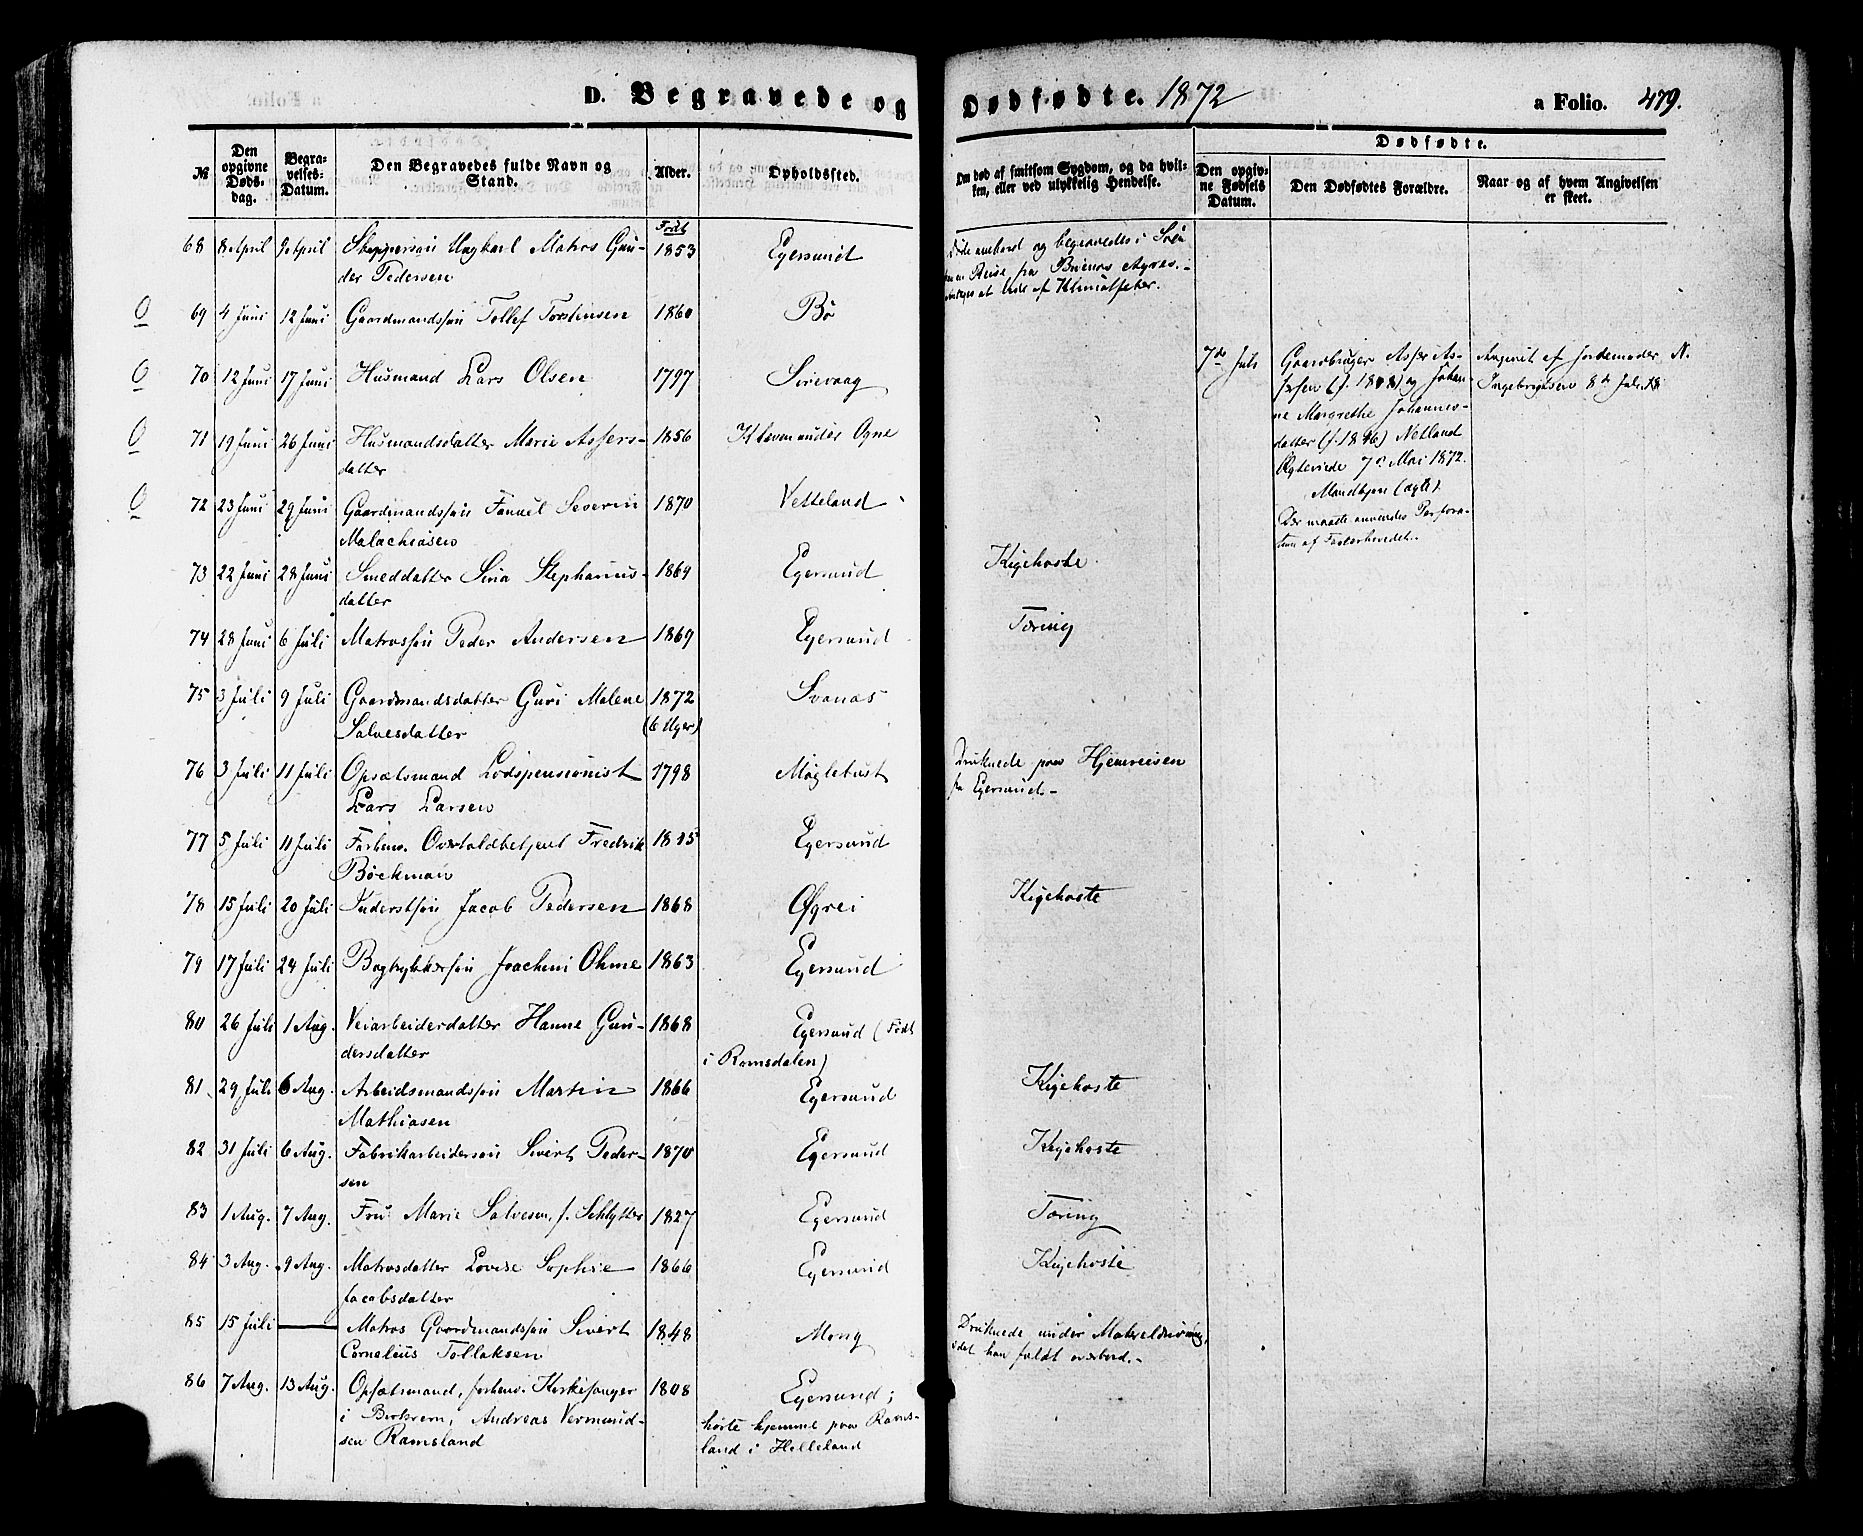 D. Begravede og Dødfødte. 1872 a Folio. 479.
№ Den opgivne Døds-dag. Begra-velses-Datum. Den Begravedes fulde Navn og Stand. Alder. Opholdssted. Om død af smitsom Sygdom, og da hvil-ken, eller ved ulykkelig Hendelse. Dødfødte.
Den opgiv-ne Fødsels Datum. Den Dødfødtes Forældre. Naar og af hvem Angivelsen er skeet.
Født
68 8 April 9 April Matros Gun- 1853 Egersund Døde ombord og begravedes i Søen
der Pedersen Reise fra Buenos Ayres.
af Klimatfeber.
O 69 4 Juni 12 Juni Gaardmandssøn Tollef Torstensen 1860 Bø
O 70 12 Juni 17 Juni Husmand Lars Olsen 1797 Sirevaag
7de Juli Gaardbruger Asser As-
sersen og Johan-
ne Margrethe Johannes-
datter (f. 1846) Netland
Ægteviede 7de Mai 1872.
Mandkjøn (ægte).
Der maatte anvendes Perfora-
tion af Fosterhovedet.
Angivet af Jordemoder N.
Ingebrigtsen 8de Juli
O 71 19 Juni 26 Juni Husmandsdatter Marie Assers- 1856 Ogne
datter
O 72 23 Juni 29 Juni Gaardmandssøn Fanuel Severin 1870 Vetteland
Malachiasen
73 22 Juni 28 Juni Smeddatter Sina Stephanus- 1869 Egersund Kigehoste
datter
74 28 Juni 6 Juli Matrossøn Peder Andersen 1869 Egersund Tæring
75 3 Juli 9 Juli Gaardmandsdatter Guri Malene 1872 Svanæs
Salvesdatter (6 Uger)
76 3 Juli 11 Juli Opsætsmand Lodspensionist 1798 Møglebust Druknede paa Hjemreisen
Lars Larsen fra Egersund.-
77 5 Juli 11 Juli Forhenv. Overtoldbetjent Fredrik Egersund
Bøckman
78 15 Juli 20 Juli Inderstsøn Jacob Pedersen 1868 Øgrei Kigehoste
79 17 Juli 24 Juli Bogtrykkersøn Joachim Ohme 1863 Egersund
80 26 Juli 1 Aug. Veiarbeiderdatter Hanne Gun- 1868 Egersund (Født
dersdatter i Romsdalen)
81 29 Juli 6 Aug. Arbeidsmandssøn Martin 1866 Egersund Kigehoste
Mathiasen
82 31 Juli 6 Aug. Fabrikarbeidersøn Sivert Peder- 1870 Egersund Kigehoste
sen
83 1 Aug. 7 Aug. Fru Marie Salvesen, f. Schlytter 1827 Egersund Tæring
84 3 Aug. 9 Aug. Matrosdatter Lovise Sophie 1866 Egersund Kigehoste
Jacobsdatter
85 15 Juli — Matros Gaardmandssøn Sivert 1848 Mong Druknede under
Cornelius Tollaksen idet han faldt overbord.-
86 7 Aug. 13 Aug. Opsætsmand, forhenv. Kirkesanger 1808 Egersund;
i Birkrem, Andreas Vermund- hørte hjemme paa Rams-
sen Ramsland land i Helleland